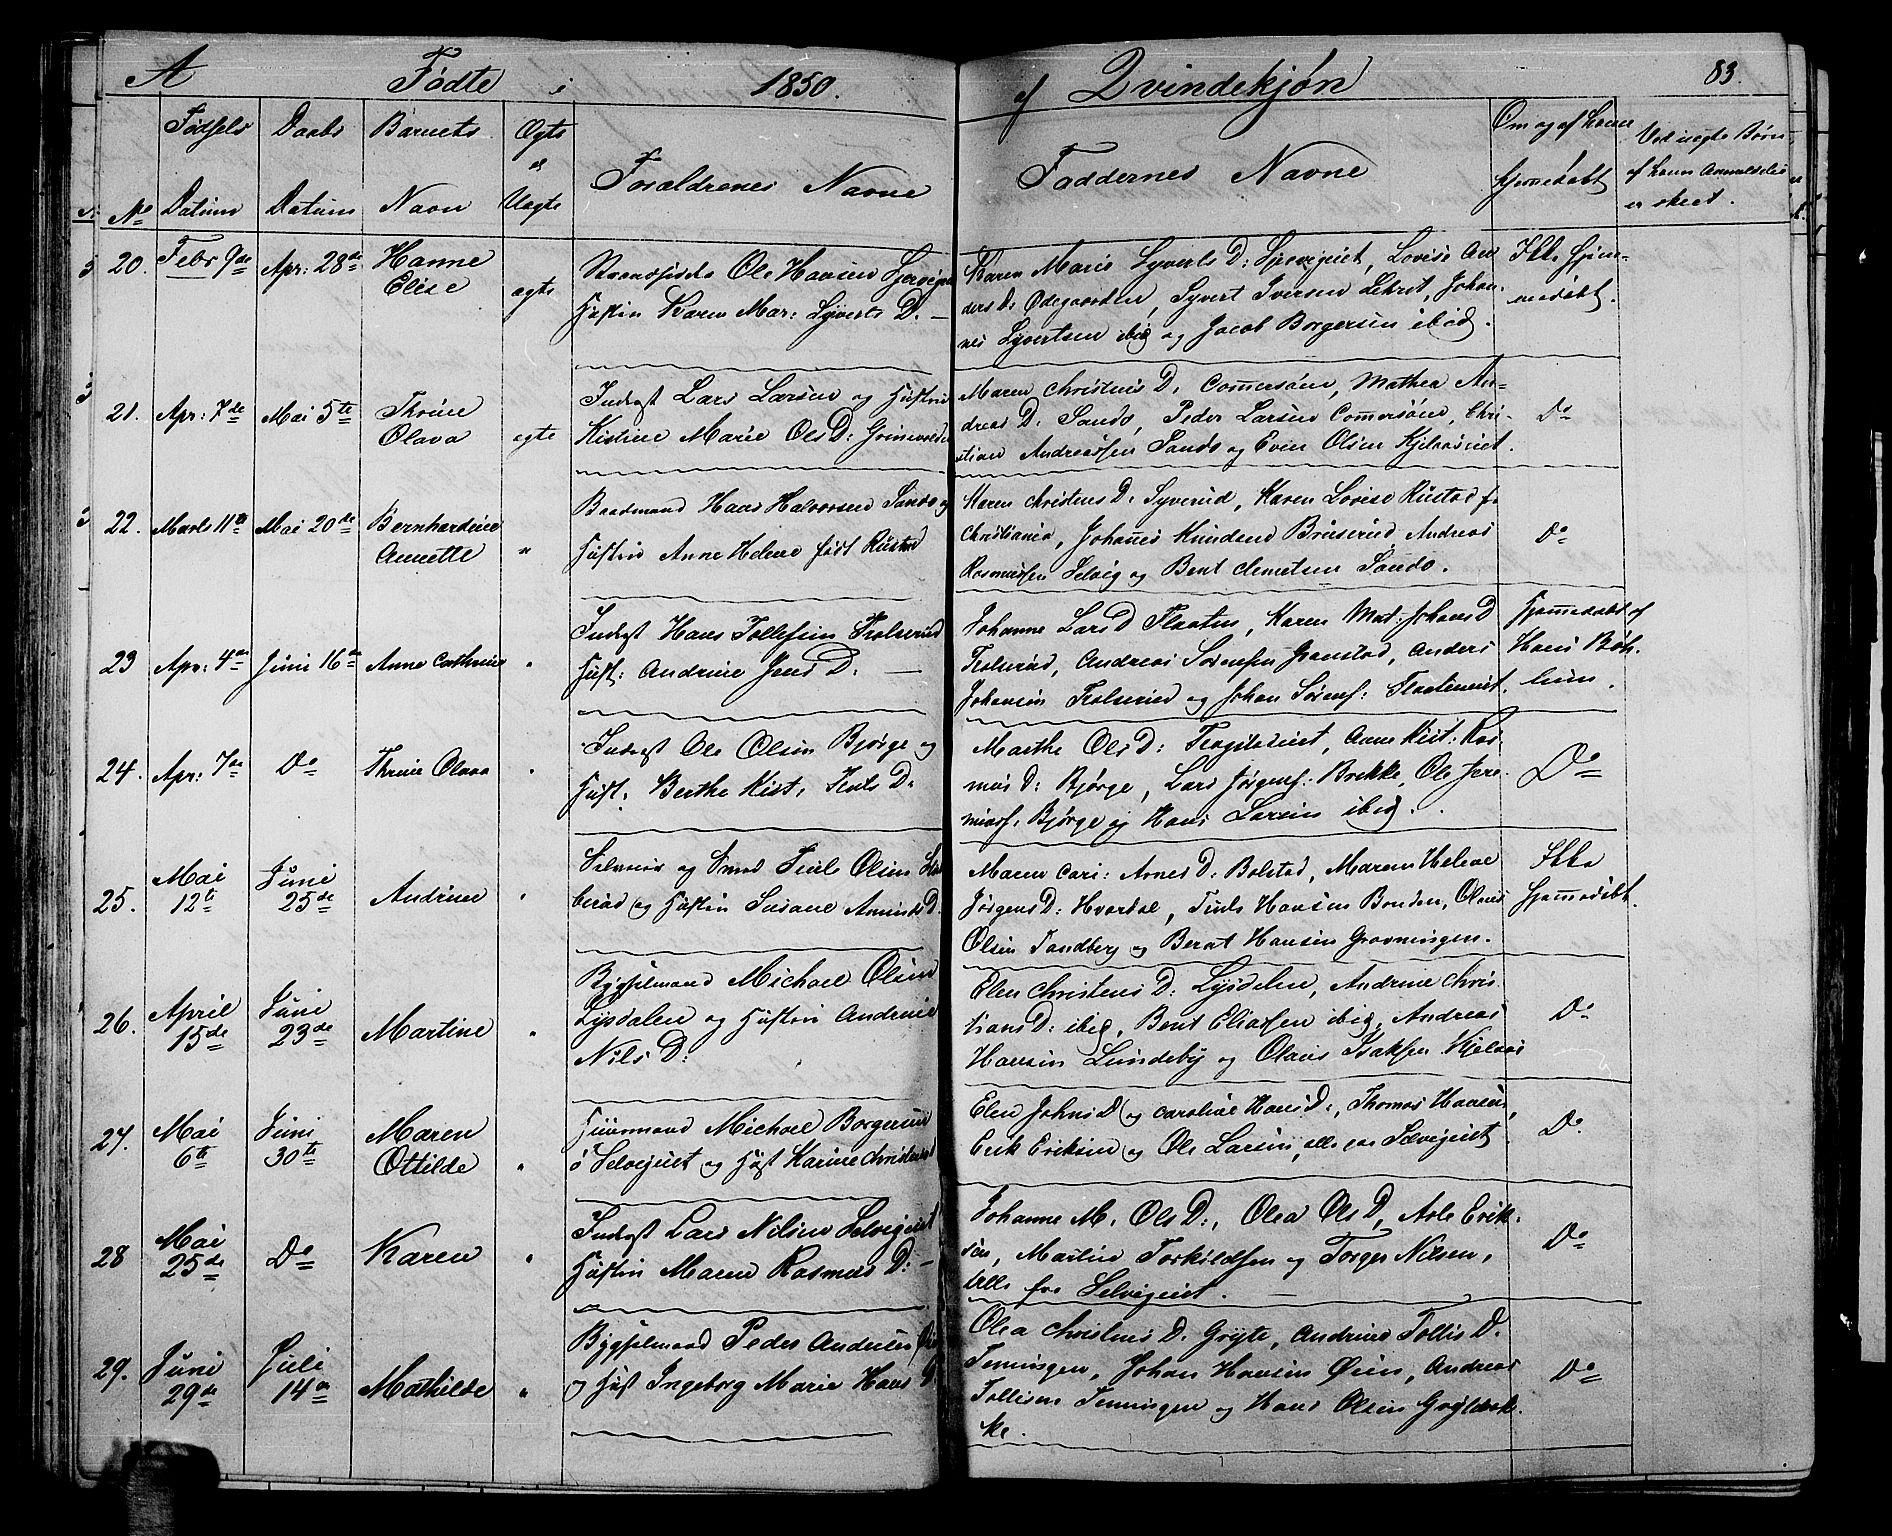 A Fødte i 1850. af Qvindekjøn 83.
No Fødsels Datum Daabs Datum Barnets Navn Ægte el Uægte Forældrenes Navne Faddernes Navne Om og af hvem hjemmedøbt Ved uægte Børn af hvem Anmeldelse er skeet.
20. Febr 9de Apr: 28de Hanne Elise ægte
Strandsidd Ole Hansen
Hustru Karen Mar: Syverts D.
Karen Marie Syverts D: Lovise An
ders D: Ødegaarden, Syvert Iversen Johan
nes Syvertsen ibid og Jacob Borgersen ibid.
Ikke Hjem-
medøbt.
21. Apr: 7de Mai 5te Thrine Olava ægte
Inderst Lars Larsen og Hustru
Kistine Marie Ols D:
Maren Christens D: Commersøen, Mathea An-
dreas D: Sando, Peder Larsen Commersøen, Chri-
stian Andreassen Sando og Even Olsen
Do
22. Marts 11te Mai 20de Bernhardine Annette "
Baadsmand Hans Halvorsen Sando og
Hustru Anne Helene født Rustad
Karen Christens D: Syverud, Karen Lovise Rustad f
Christiania, Johannes Knudsen Bruserud, Andreas
Rasmussen Selvig og Bent Clemetsen Sando.
Do
23 Apr: 4de Juni 16de Anne Cathrine "
Inderst Hans Tollefsen Trolserud
Hust: Andrine Jens D:
Johanne Lars D Flaaten, Karen Mat: Johans D
Trolserud, Andreas Sørensen Anders
Johansen Trolserud og Johan Sørens: Flaateneiet.
Hjemmedøbt af
Hans Bøh-
lum.
24. Apr: 7de Do Thrine Olava "
Inderst Ole Olsen Bjørge og
Hust: Berthe Kist:
Marthe Ols D: Anne Kist: Ras
mus D: Bjørge, Lars Jørgens: Brekke, Ole Jere
mias: Bjørge og Hans Larsen ibid.
Do
25. Mai 12te Juni 25de Andrine "
Selveier og Smed Truls Olsen
og Hustru Susane
Maren Cari: Arnes D: Bolstad, Maren Helene
Jørgens D: Truls Hansen Bonden, Olaus
Olsen Sandberg og Bernt Hansen Gravningen.
Ikke
Hjemmedøbt.
26. April 15de Juni 23de Martine "
Bygselmand Michael Olsen
Lysdalen og Hustru Andrine
Nils D:
Elen Christens D: Lysdalen, Andrine Chris
tians D: ibid, Bent Eliassen ibid, Andreas
Hansen Lundeby og Olaus Isaksen Kjelaas
Do
27. Mai 6te Juni 30te Maren Ottilde "
Huusmand Michael Borgersen
Selvigeiet og Hust Karine
Elen Johns D og Caroline Hans D:, Thomas Hansen,
Erik Eriksen og Ole Larsen, alle paa Selvigeiet
Do.
28 Mai 25de Do Karen "
Inderst Lars Nilsen Selvigeiet
Hustru Maren Rasmus D:
Johanne M. Ols D:, Olea Ols D, Asle Erik-
sen, Martin Torkildsen og Torger Nilsen,
alle fra Selvigeiet.
Do
29. Juni 29de Juli 14de Mathilde "
Bygselmand Peder Andersen
og Hust Ingeborg Marie Hans D
Olea Christens D. Gryte, Andrine Tollefs D.
Tenningen, Johan Hansen Øien, Andreas
Tollefsen Tenningen og Hans Olsen
Do